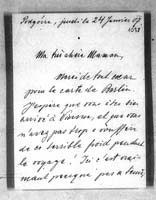 jeudi le 24 Janvier 07
Ma très chère Maman,
Merci de tout cœur
pour la carte de Berlin
J'espère que vous êtes bien
arrivé à et que vous
n'avez pas trop souffert
de ce terrible froid pendant
le voyage! Ici c'est vrai-
ment presque pas à tenir,